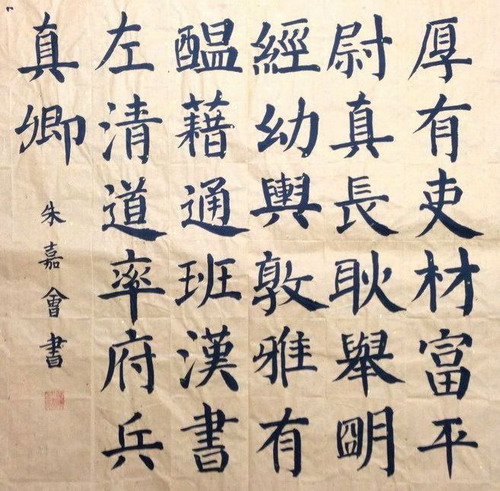 厚有吏材富平
尉真長耿舉朙
經幼輿敦雅有
醖藉通班漢書
左清道率府兵
真卿
朱嘉會書